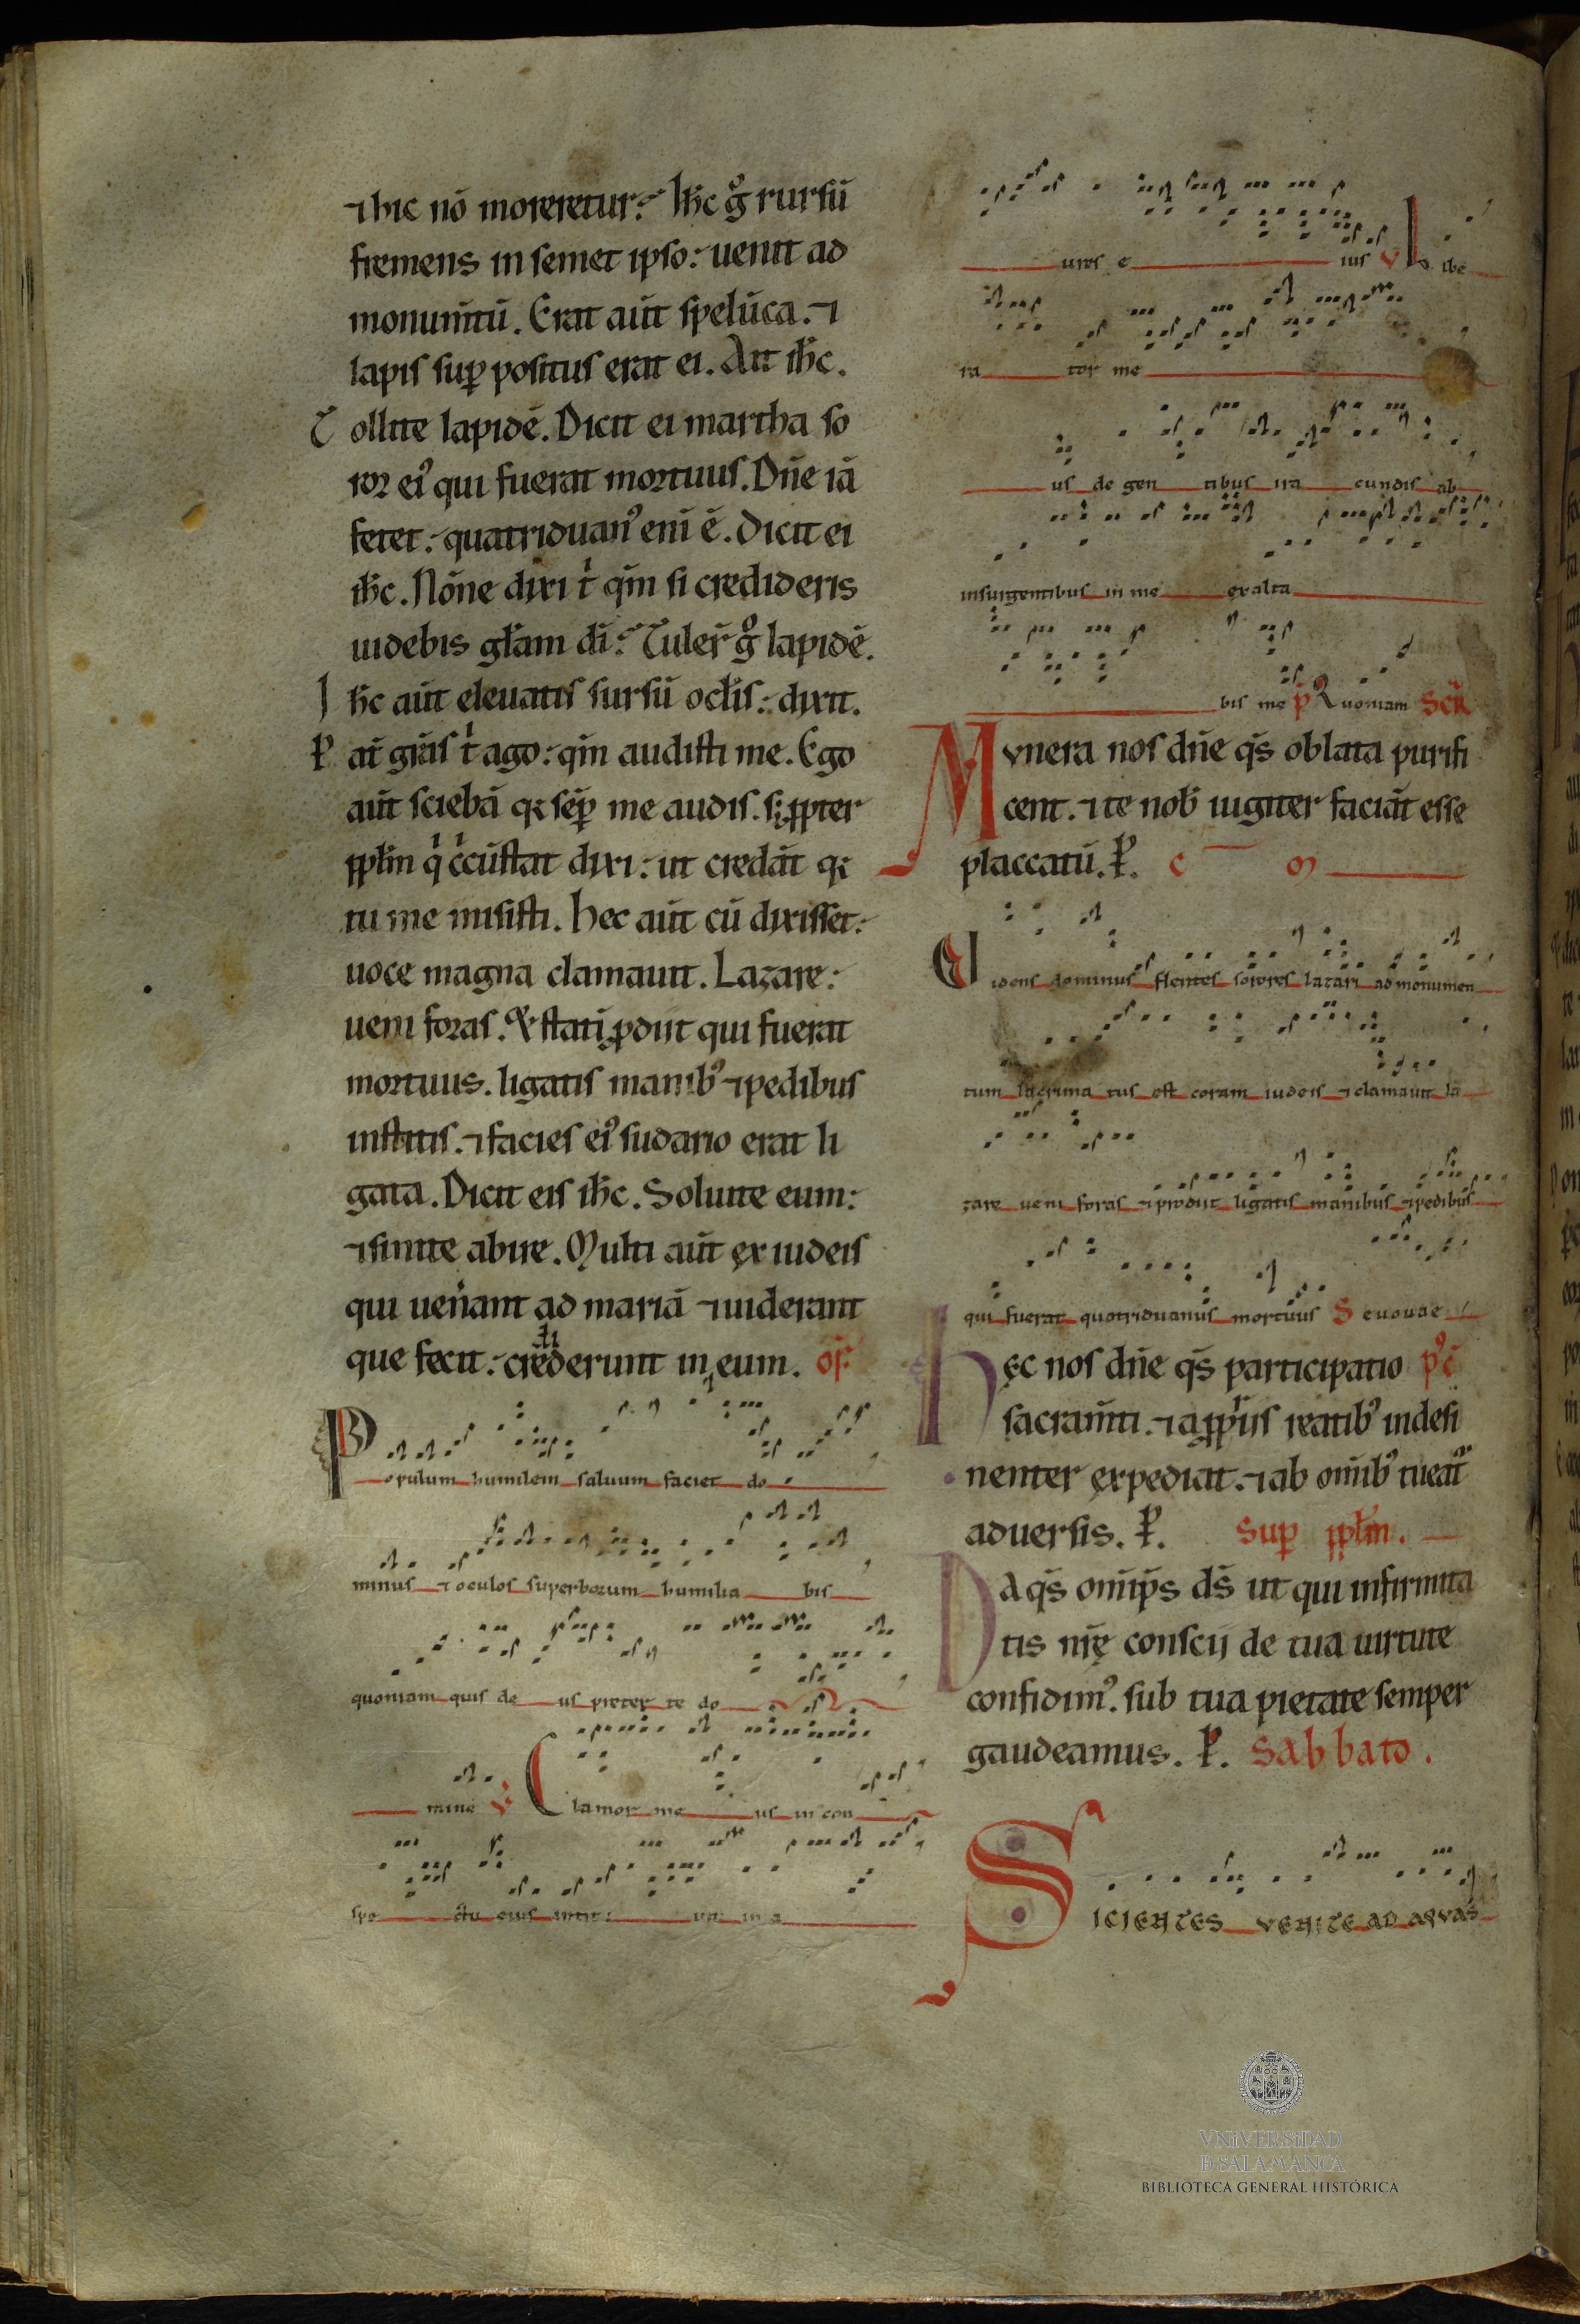 ⁊ hic nō moreretur. Ih̄c g̊ rursū
fremens in semet ipso: uenit ad
monum̄tū. Erat aūt spelūca. ⁊
lapis suꝑ positus erat ei. Ait ih̄c.
Tollite lapidē. Dicit ei martha so
ror eiꝰ qui fuerat mortuus. Dn̄e iā
fetet: quatriduanꝰ enī ē. Dicit ei
ih̄c. Nōne dixi t̄ qm̄ si credideris
uidebis gl̄am dī. Tuler̄ g̊ lapidē.
Ih̄c aūt eleuatis sursū ocl̄is: dixit.
Pat̄ gr̄as t̄ ago: qm̄ audisti me. Ego
aūt sciebā qꝛ sēꝑ me audis. sꝫ ꝓpter
ppl̄m q̄ c̄cūstat dixi: ut credāt qꝛ
tu me misisti. Hec aūt cū dixisset:
uoce magna clamauit. Lazare:
ueni foras. Et stati ꝓdiit qui fuerat
mortuus. ligatis manibꝰ ⁊ pedibus
institis. ⁊ facies eiꝰ sudario erat li
gata. Dicit eis ih̄c. Soluite eum:
⁊ sinite abire. Multi aūt ex iudeis
qui uen̄ant ad mariā ⁊ uiderant
que fecit: crediderunt in eum. of̄
Populum humilem saluum faciet do
minus ⁊ oculos superborum humilia bis
quoniam quis de us preter te do
mine V Clamor me us in con
spe ctu eius in a
ures e ius V Libe
ra tor me
us de gen tibus ira cundis ab
insurgentibus in me exalta
bis me P Quoniam SCR̄
Munera nos dn̄e qs̄ oblata purifi
cent. ⁊ te nob̄ iugiter faciāt esse
placcatū. P. c̄ōm
Videns dominus flentes sorores lazari ad monumen
tum lacrima tus est coram iudeis ⁊ clamauit la
zare ueni foras ⁊ prodiit ligatis manibus ⁊ pedibus
qui fuerat quatriduanus mortuus Seuouae
Hęc nos dn̄e qs̄ participatio pꝰc̄
sacram̄ti. ⁊ a ꝓpriis reatibꝰ indesi
nenter expediat. ⁊ ab om̄ibꝰ tueat᷑
aduersis. P. Sup ppl̄m.
Da qs̄ om̄ip̄s ds̄ ut qui infirmita
tis nr̄ę conscii de tua uirtute
confidimꝰ. sub tua pietate semper
gaudeamus. P. Sabbato.
SICIENTES VENITE AD AQVAS
VNIVERSIDAD
D SALAMANCA
BIBLIOTECA GENERAL HISTÓRICA